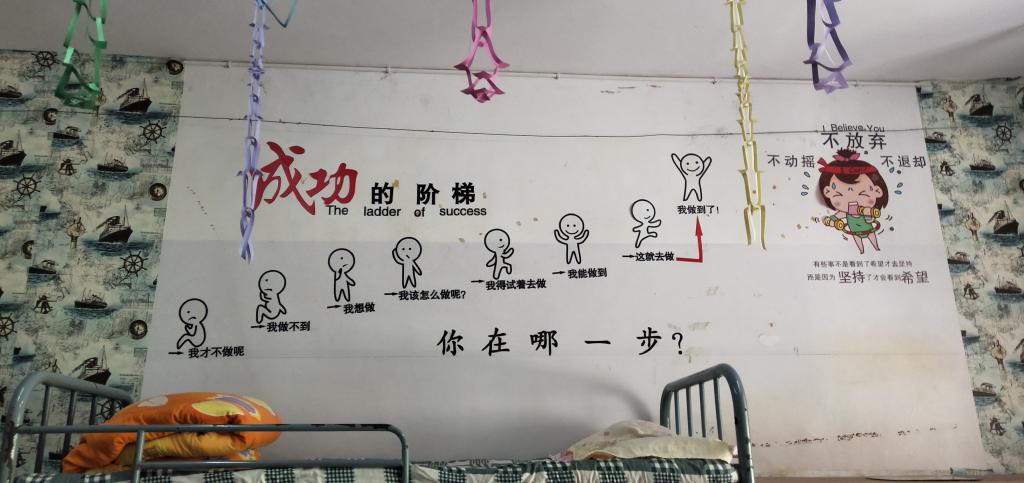 成功的阶梯
The ladder of success
我才不做呢
我做不到
我想做
我该怎么做呢?
我得试着去做
我能做到
这就去做
我做到了!
你在哪一步?
I Believe You
不放弃
不动摇
不退却
有些事不是看到了希望才去坚持
而是因为坚持了才会看到希望